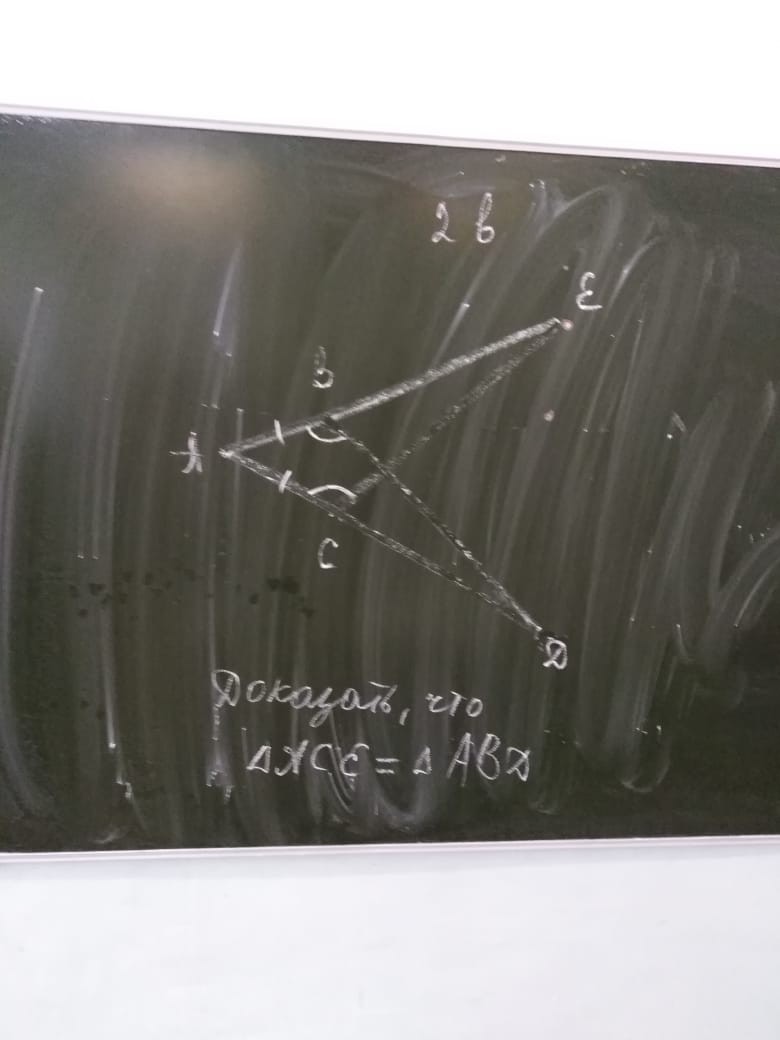 2 в
E
B
A
C
D
Доказать, что
△ACE = △ABD